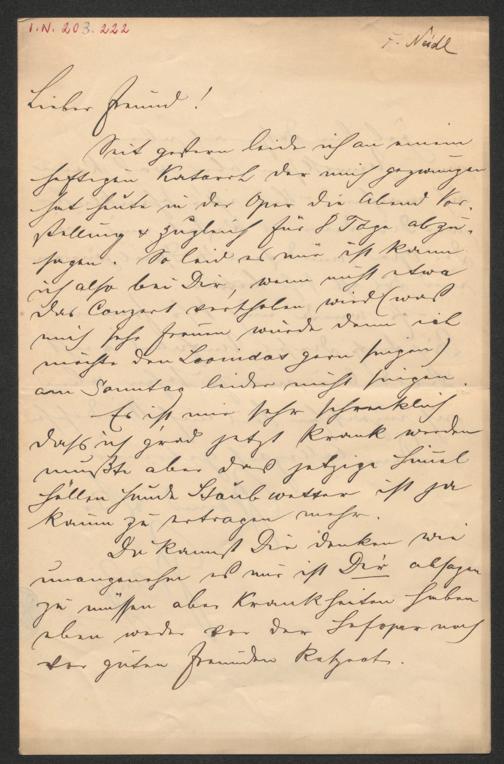 I.N. 203.222
F. Neidl
Lieber Freund!
Seit gestern leide ich an einem
heftigen Katarrh der mich gezwungen
hat heute in der Oper die Abend Vor-
stellung & zugleich für 8 Tage abzu-
sagen. So leid es mir ist kann
ich also bei Dir, wenn nicht etwa
das Conzert verschoben wird (was
mich sehr freuen würde denn ich
möchte den Leonidas gern singen)
am Sonntag leider nicht singen.
Es ist mir sehr schrecklich
dass ich grad jetzt krank werden
mußte aber das jetzige
Höllen Hunde Staub wetter ist ja
kaum zu ertragen mehr.
Du kannst Dir denken wie
unangenehm es mir ist Dir absagen
zu müssen aber Krankheiten haben
eben weder vor der Hofoper noch
vor guten Freunden